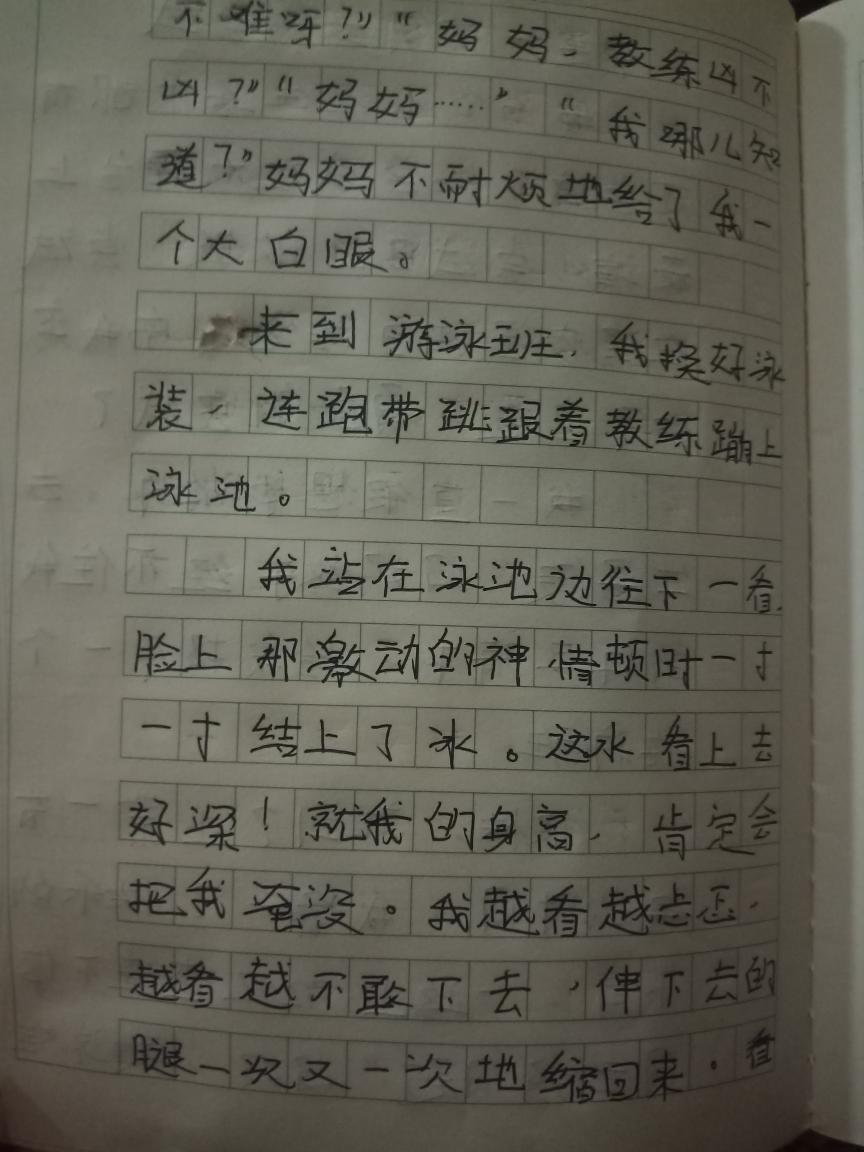 不难呀？”“妈妈，教练凶不
凶？”“妈妈……”“我哪儿知
道？”妈妈不耐烦地给了我一
个大白眼。
来到游泳班，我换好泳
装，连跑带跳跟着教练蹦上
泳池。
我站在泳池边往下一看，
脸上那激动的神情顿时一寸
一寸结上了冰。这水看上去
好深！就我的身高，肯定会
把我淹没。我越看越忐忑，
越看越不敢下去，伸下去的
腿一次又一次地缩回来。看